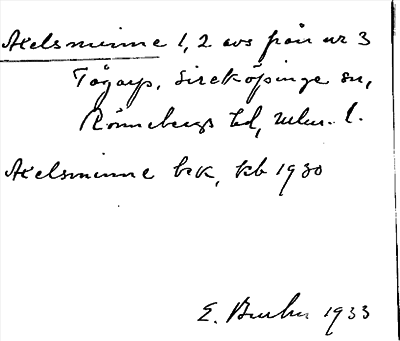 Axelsminne 1, 2 avs från nr 3
Tågarp, Sireköpinge sn,
Rönnebergs hd, Mlm. l.
Axelsminne brk, kb 1930
E. 1933